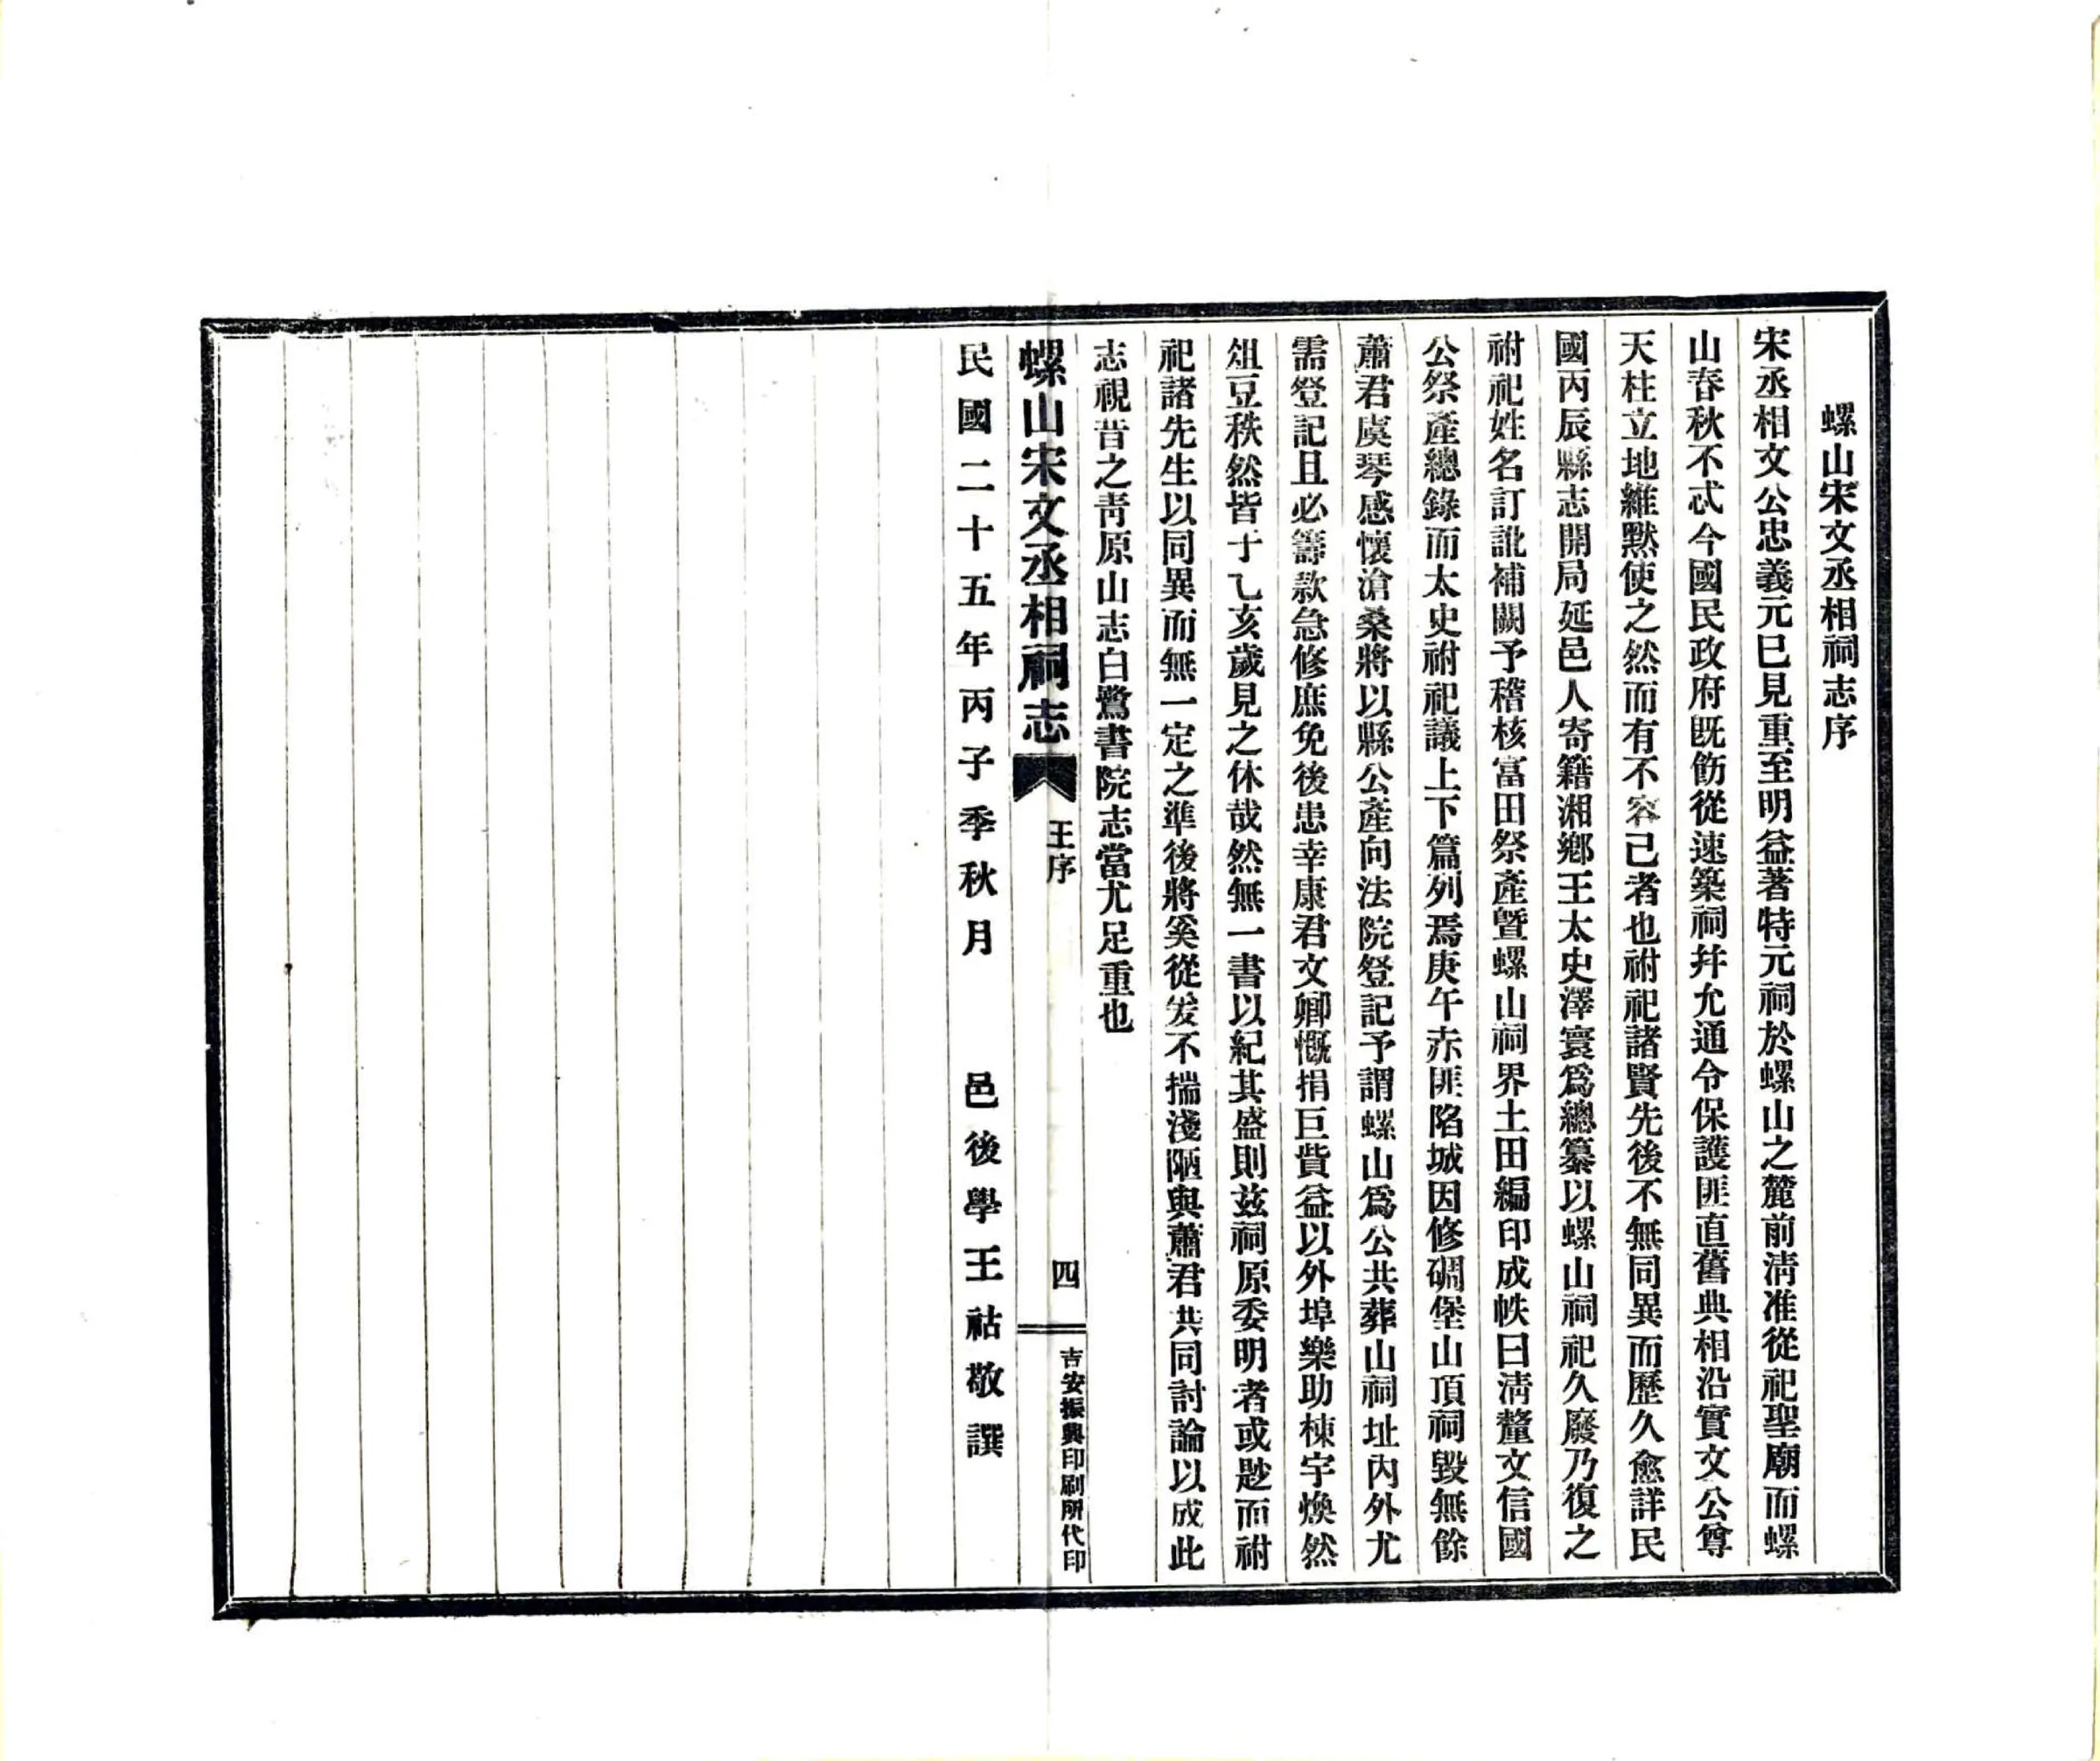 螺山宋文丞相祠志序
宋丞相文公忠義元巳見重至明益著特元祠於螺山之麓前淸准從祀聖廟而螺
山春秋不忒今國民政府既飭從速築祠幷允通令保護匪直舊典相沿實文公尊
天柱立地維默使之然而有不容己者也祔祀諸賢先後不無同異而歷久愈詳民
國丙辰縣志開局延邑人寄籍湘鄕王太史澤寰爲總纂以螺山祠祀久廢乃復之
祔祀姓名訂訛補闕予稽核富田祭產曁螺山祠界土田編印成帙曰淸釐文信國
公祭產總錄而太史祔祀議上下篇列焉庚午赤匪陷城因修碉堡山頂祠毀無餘
蕭君虞琴感懷滄桑將以縣公產向法院登記予謂螺山爲公共葬山祠址內外尤
需登記且必籌款急修庶免後患幸康君文卿慨捐巨貲益以外埠樂助棟宇煥然
俎豆秩然皆于乙亥歲見之休哉然無一書以紀其盛則茲祠原委明者或尟而祔
祀諸先生以同異而無一定之準後將奚從犮不揣淺陋與蕭君共同討論以成此
志視昔之靑原山志白鷺書院志當尤足重也
螺山宋文丞相祠志 王序 四 吉安振興印刷所代印
民國二十五年丙子季秋月 邑後學王祜敬譔